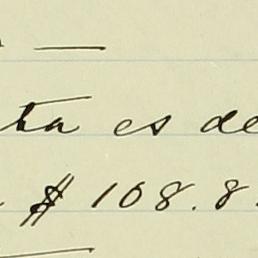 ta es de
$ 108.8